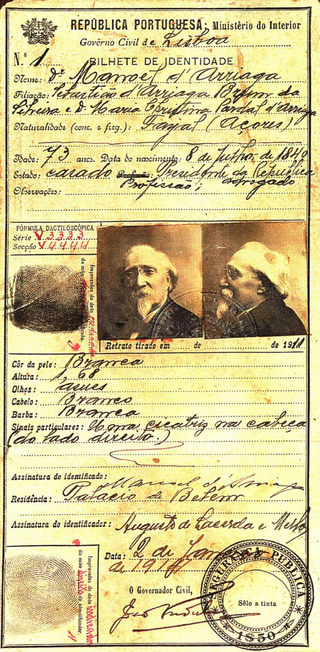 REPÚBLICA PORTUGUESA: Ministério do Interior
Govêrno Civil de Lisboa
N.º 1
BILHETE DE IDENTIDADE
Nome: Dr. Manoel d'Arriaga
Filiação: Sebastião d'Arriaga Brum da
Silveira e D. Maria Cristina Pardal d'Arriaga
Naturalidade (conc. e freg.): Fayal (Açores)
Idade: 73 anos. Data do nascimento: 8 de Julho de 1840
Estado: casado Presidente da República
Profissão: advogado
Observações:
FÓRMULA DACTILOSCÓPICA
Série V.3333
Secção V.4444
Impressões do dedo
da mão
Retrato tirado em de de 1911
Côr da pele: Branca
Altura: 1,68
Olhos:
Cabelo: Branco
Barba: Branca
Sinais particulares: Uma cicatriz na cabeça
(do lado direito)
Assinatura do identificado: Manuel d'Arriaga
Residência: Palacio de Belem
Assinatura do identificador: Augusto de Lacerda e Mello
Impressões do dedo
da mão
Data: 2 de
de 19
O Governador Civil,
SEGURANÇA PUBLICA
Sêlo a tinta
1850